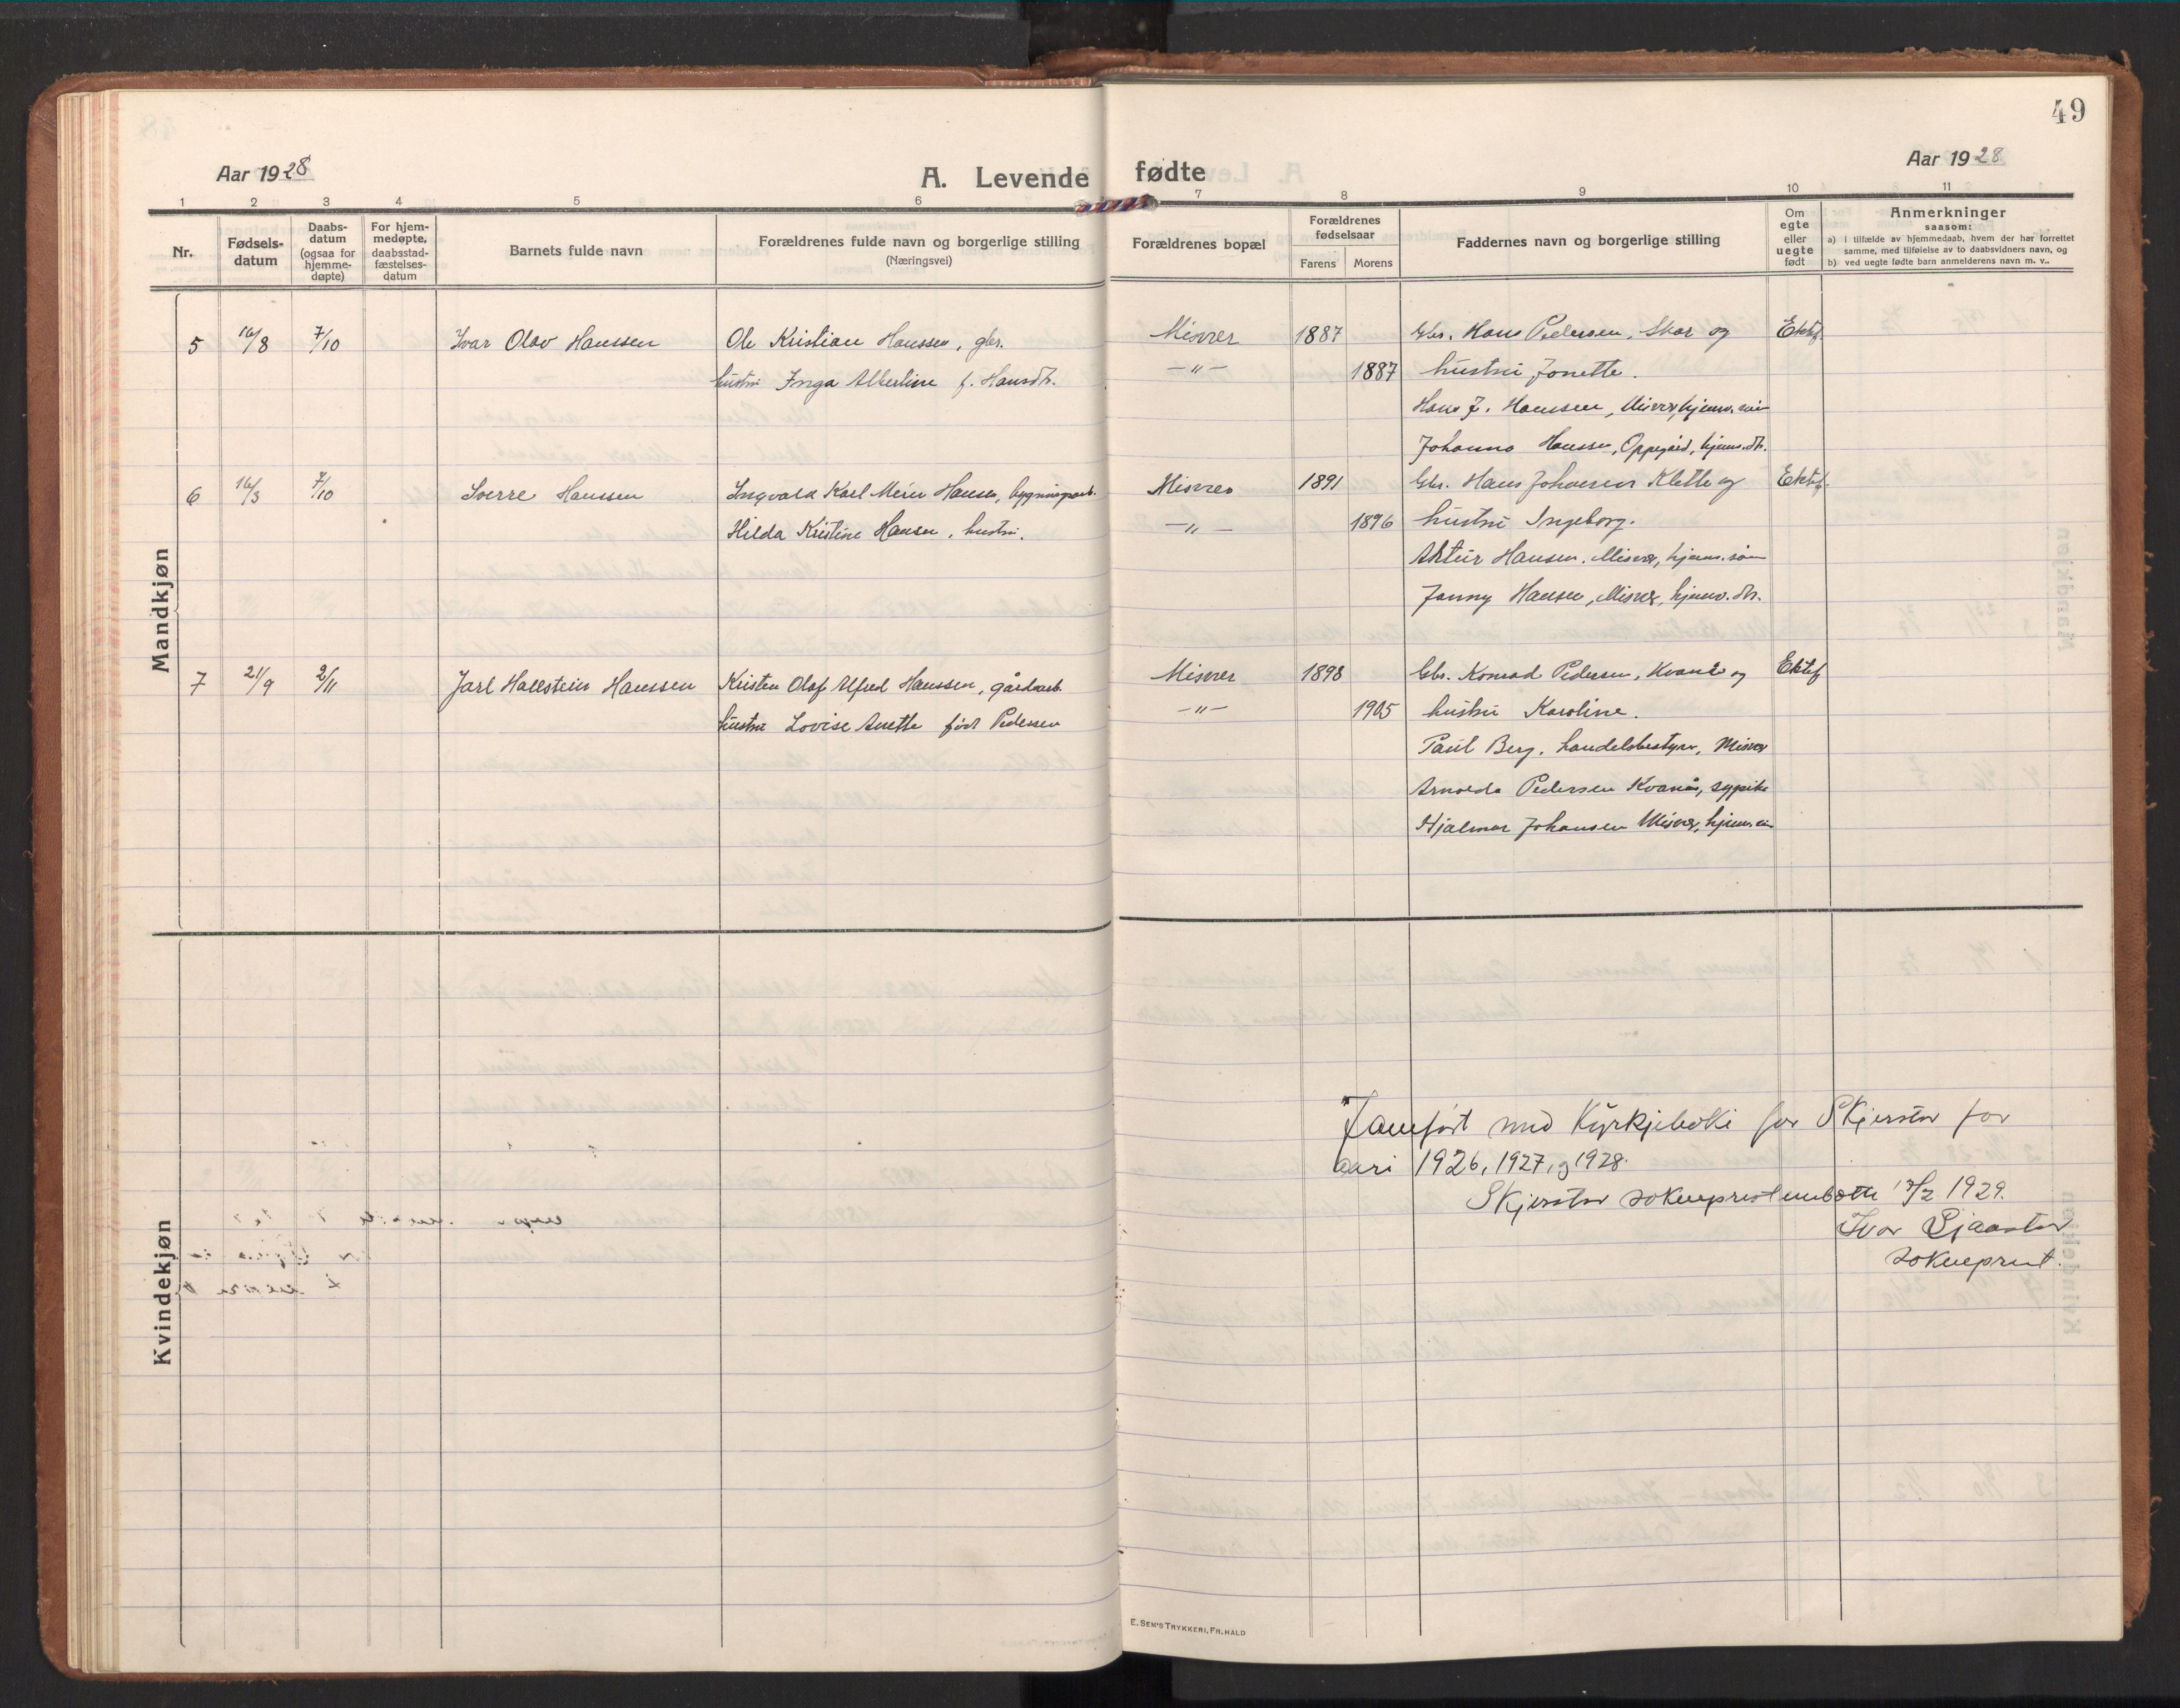 49
Aar 1928
A. Levende fødte
Aar 1928
1 2 3 4 5 6 7 8 9 10 11
Nr.
Fødsels-
datum
Daabs-
datum
(ogsaa for
hjemme-
døpte)
For hjem-
medøpte,
daabsstad-
fæstelses-
datum
Barnets fulde navn
Forældrenes fulde navn og borgerlige stilling
(Næringsvei)
Forældrenes bopæl
Forældrenes
fødselsaar
Farens Morens
Faddernes navn og borgerlige stilling
Om
egte
eller
uegte
født
Anmerkninger
saasom:
a) i tilfælde av hjemmedaab, hvem der har forrettet
samme, med tilføielse av to daabsvidners navn, og
b) ved uegte fødte barn anmelderens navn m. v..
Mandkjøn
5 16/8 7/10 Ivar Olav Hanssen Ole Kristian Hanssen, gbr. Misvær 1887 Gbr. Hans Pedersen, Skar og Ektef.
hustru Inga Albertine f. Hansdtr. —"— 1887 hustru Jonette.
Hans J. Hanssen, Misvær, hjemv. søn
Johanna Hanssen, Oppegård, hjemv. dtr.
6 16/3 7/10 Sverre Hanssen Ingvald Karl Meier Hansen, bygningsarb. Misvær 1891 Gbr. Hans Johansen Klette og Ektef.
Hilda Kristine Hansen, hustru. —"— 1896 hustru Ingeborg.
Artur Hansen, Misvær, hjemv. søn
Jenny Hansen, Misvær, hjemv. dtr.
7 21/9 2/11 Jarl Hallstein Hanssen Kristen Olaf Alfred Hanssen, gårdarb. Misvær 1898 Gbr. Konrad Pedersen, Kvanås og Ektef
hustru Lovise Anette født Pedersen —"— 1905 hustru Karoline.
Paul Berg, handelsbestyrer, Misvær
Arnolda Pedersen Kvanås, sypike
Hjalmar Johansen Misvær, hjemv. søn
Kvindekjøn
Jamført med Kyrkjeboki for Skjerstad for
aari 1926, 1927, og 1928.
Skjerstad sokneprestembætte /2 1929.
Ivar
sokneprest.
E. SEM'S TRYKKERI, FR.HALD